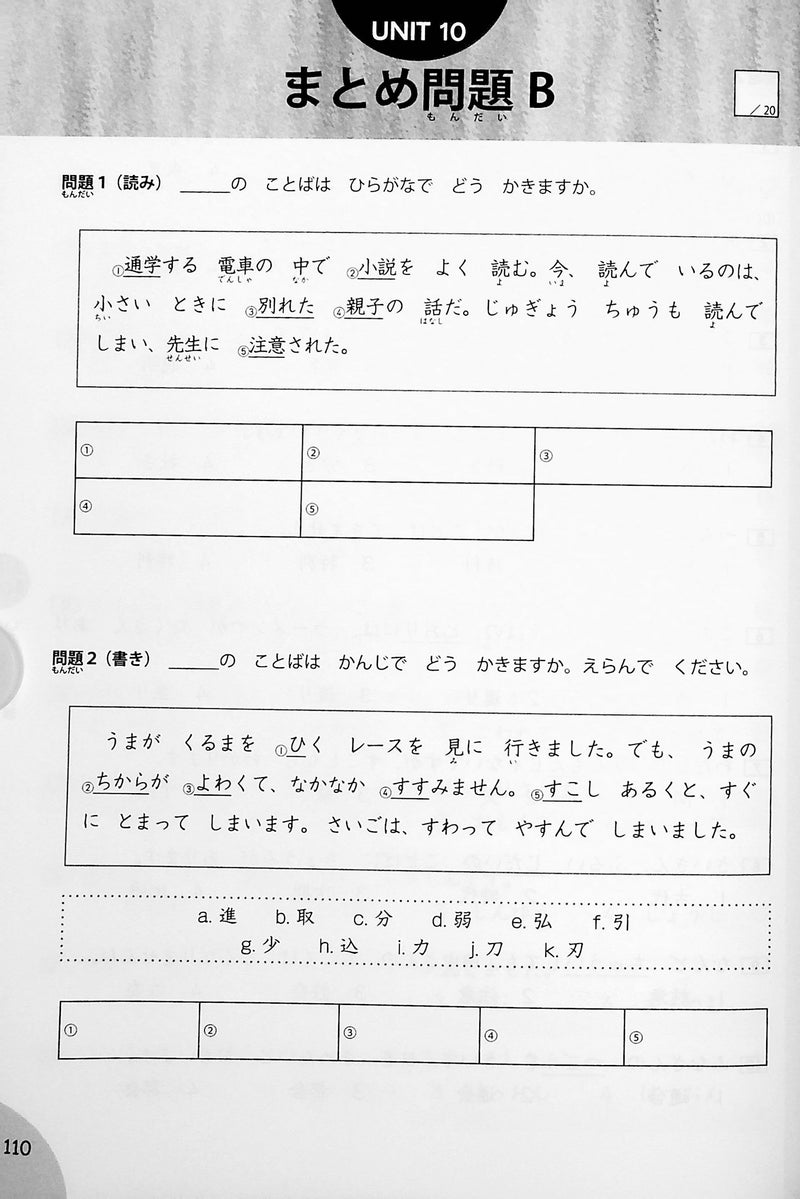 UNIT 10
まとめ問題 B
もんだい
／20
問題1（読み） _____の ことばは ひらがなで どう かきますか。
もんだい
①通学する 電車の 中で ②小説を よく 読む。今、 読んで いるのは、
でんしゃ なか よ いま よ
小さい ときに ③別れた ④親子の 話だ。じゅぎょう ちゅうも 読んで
ちい はなし よ
しまい、先生に ⑤注意された。
せんせい
① ② ③
④ ⑤
問題2（書き） _____の ことばは かんじで どう かきますか。えらんで ください。
もんだい
うまが くるまを ①ひく レースを 見に 行きました。でも、 うまの
み い
②ちからが ③よわくて、なかなか ④すすみません。⑤すこし あるくと、すぐ
に とまって しまいます。さいごは、すわって やすんで しまいました。
a. 進 b. 取 c. 分 d. 弱 e. 弘 f. 引
g. 少 h. 込 i. 力 j. 刀 k. 刃
① ② ③ ④ ⑤
110